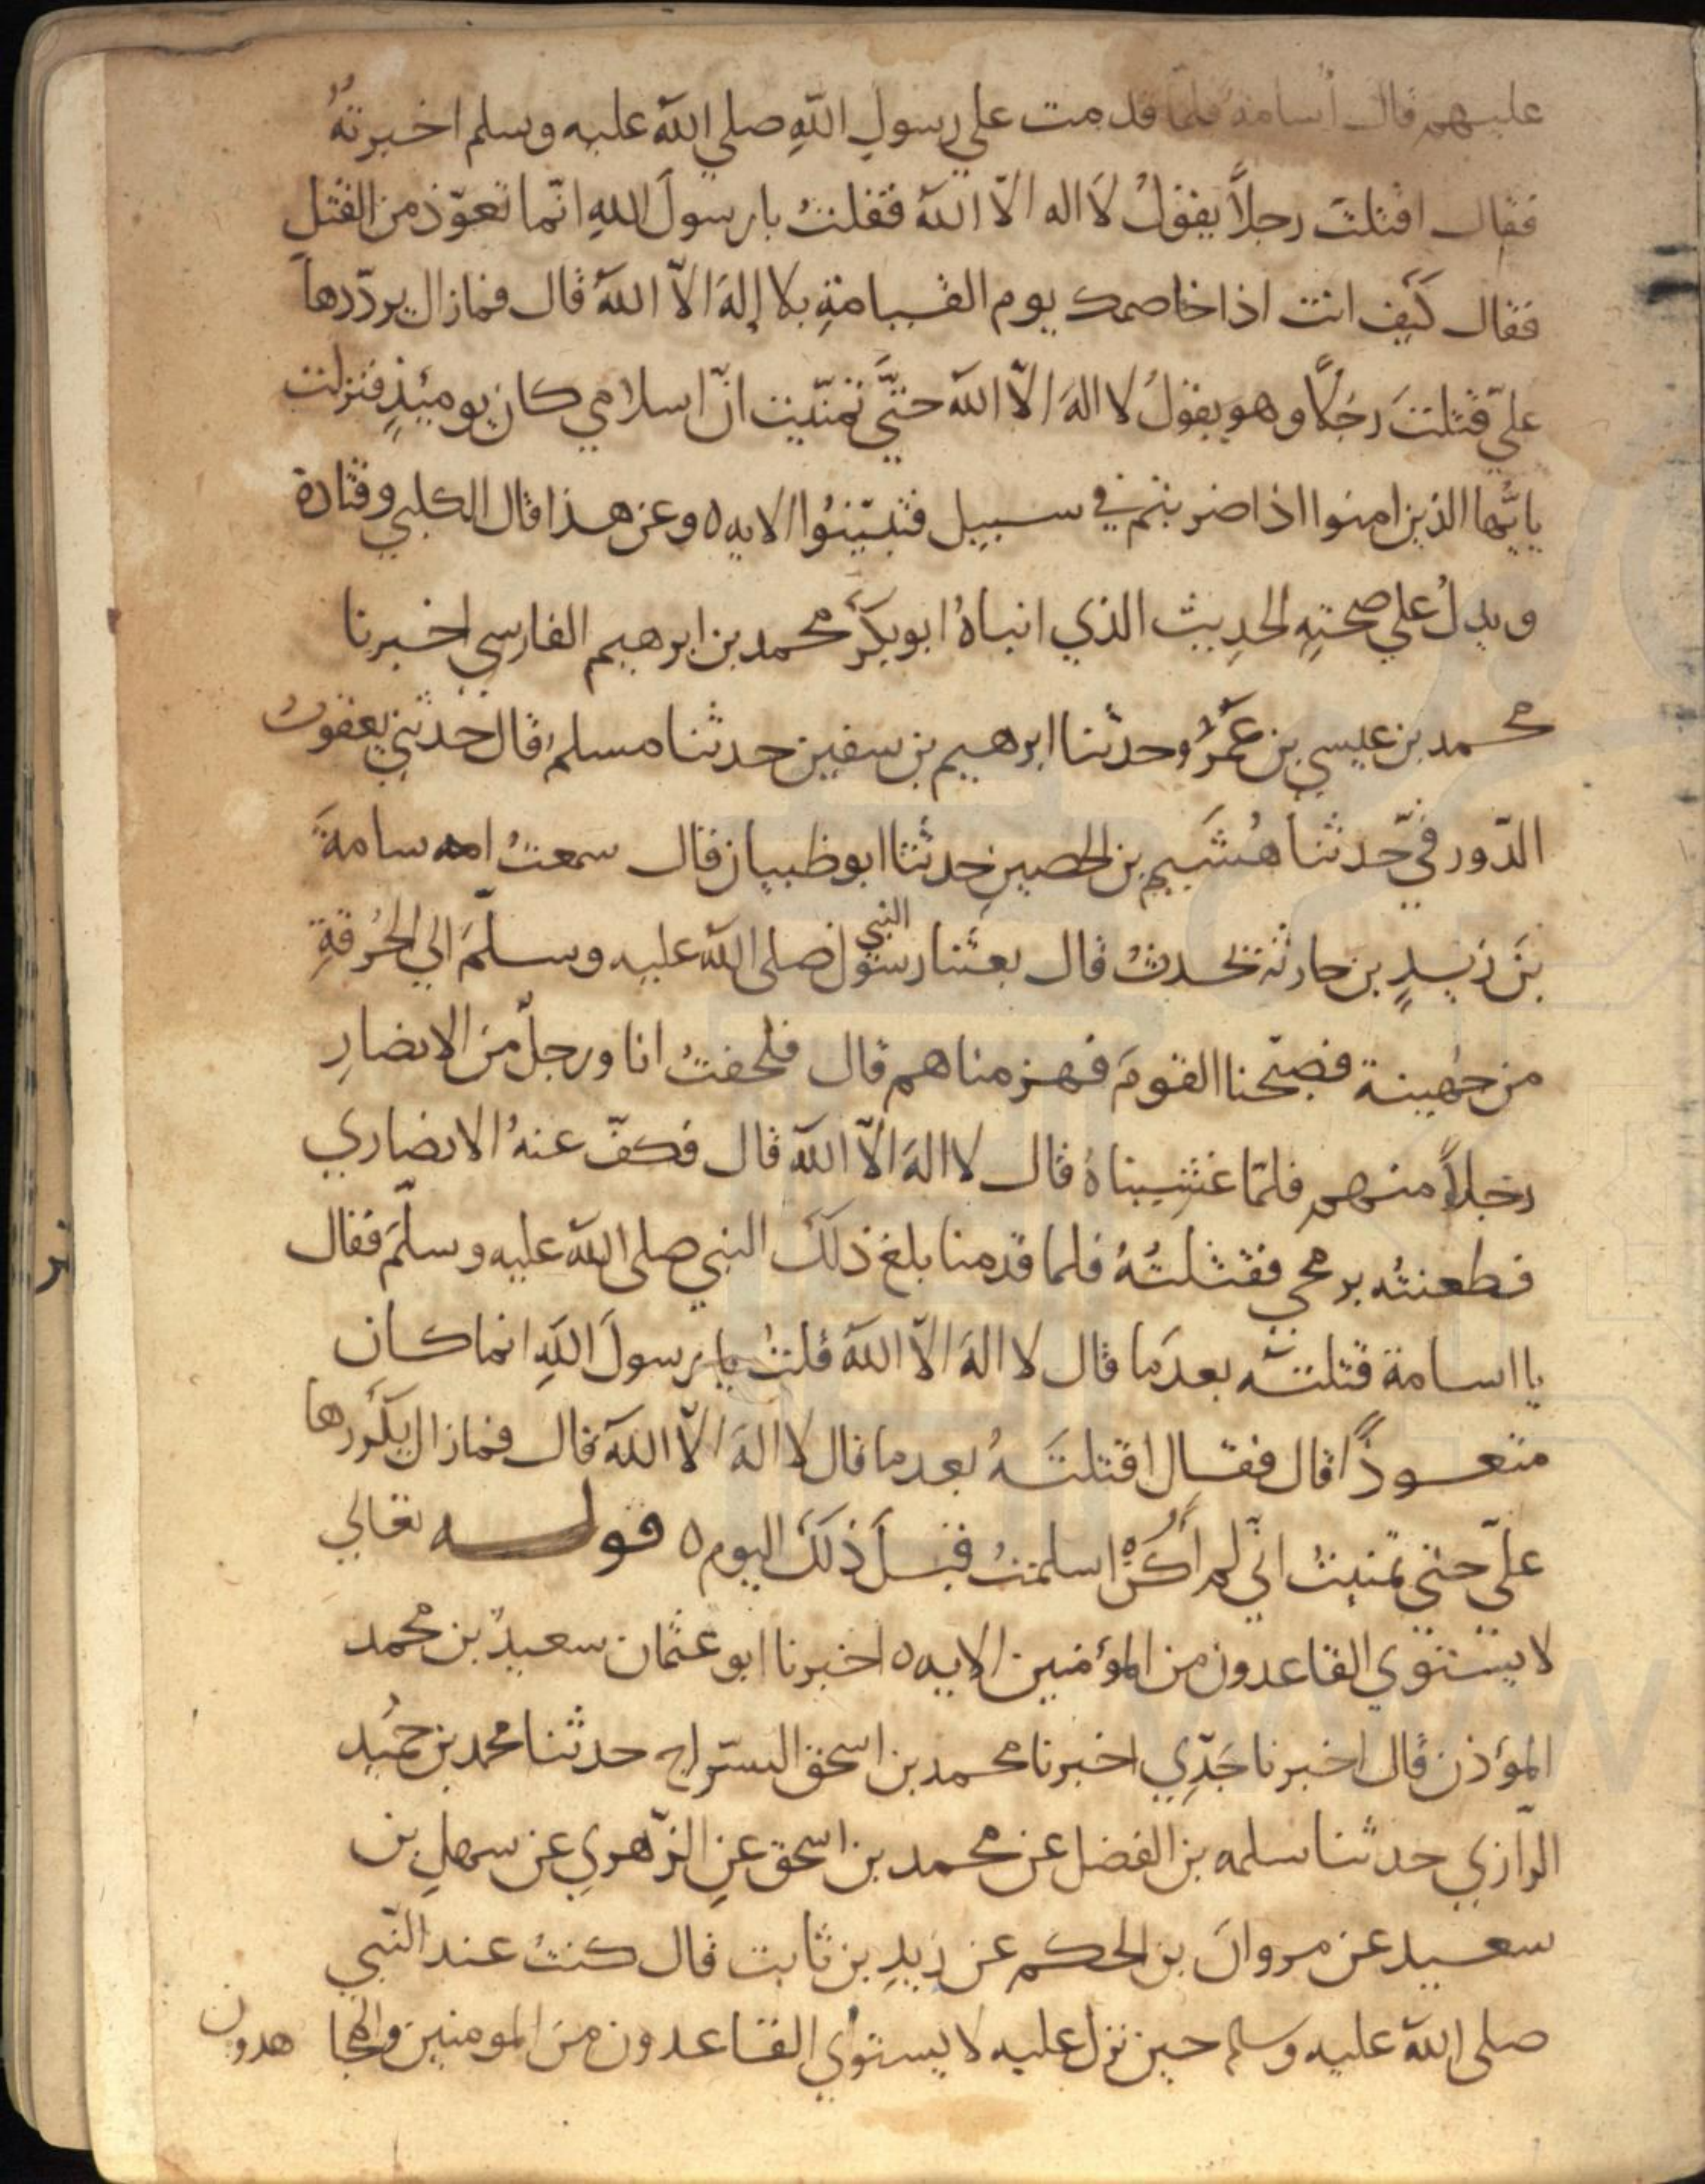 عليهم قال أسامة فلما قدمت على رسول اللهِ صلى اللهُ عليه وسلم اخبرتهُ
فقال اقتلتَ رجلاً يقولُ لاَ اله الاّ اللهُ فقلتُ يا رسولَ اللهِ انّما تعوّذ من القتل
فقال كَيف انت اذا خاصمك يوم القيامةِ بلا إلهَ الاّ اللهُ قال فما زال يردّدها
عليّ قتلتَ رجلاً وهو يقولُ لا الهَ الاّ اللهُ حتَّى تمنّيت انّ اسلامي كان يوميئذٍ فنزلت
يايُّها الذين امنوا اذا ضربتم في سبيل فتبيّنُوا الايه ٥ وعن هذا قال الكلبي وقتادة
ويدلُ على صحتهِ الحديث الذي انباهُ ابو بكر محمد بن ابرهيم الفارسي اخبرنا
محمد بن عيسي بن عَمرُو حدثنا ابرهيم بن سفين حدثنا مسلم قال حدثني يعقوب
الدّورقيّ حدثنا هُشَيم بن الحصين حدثنا ابو ظبيان قال سمعتُ اسامةَ
بنَ زيدٍ بن حارثة يحدثُ قال بعثنا رسول النبي صلى اللهُ عليه وسلّمَ الي الحُرقةِ
من جُهينة فصبّحنا القومَ فهزمناهم قال فلحقتُ انا ورجلٌ من الانصارِ
رجلاً منهم فلمّا غشيناهُ قال لا الهَ الاّ اللهُ قال فكفّ عنهُ الانصاري
فطعنتُه برمحي فقتلتُهُ فلما قدمنا بلغ ذلكَ النبي صلى اللهُ عليه وسلّمَ فقال
يا اسامة قتلتَه بعدَما قال لا الهَ الاّ اللهُ قلتُ يا رسولَ اللهِ انما كان
متعوذًا قال فقال اقتلتَهُ بعد ما قال لا الهَ الاّ اللهُ قال فما زال يكررها
عليّ حتي تمنيتُ انّي لم أكُنْ اسلمتُ قبلَ ذلكَ اليوم ٥ قوله تعالي
لا يستوي القاعدون من المؤمنين الايه ٥ اخبرنا ابو عثمان سعيدُ بن محمد
المؤذن قال اخبرنا جَدِّي اخبرنا محمد بن اسحق السّراج حدثنا محمد بن حُميد
الرّازي حدثنا سلمه بن الفضل عن محمد بن اسحق عنِ الزّهري عن سهلِ بن
سعيد عن مروانَ بن الحكم عن زيدِ بن ثابت قال كنتُ عند النّبي
صلى اللهُ عليه وسلم حين نزل عليه لا يستوي القاعدون من المومنين والمجا هدون